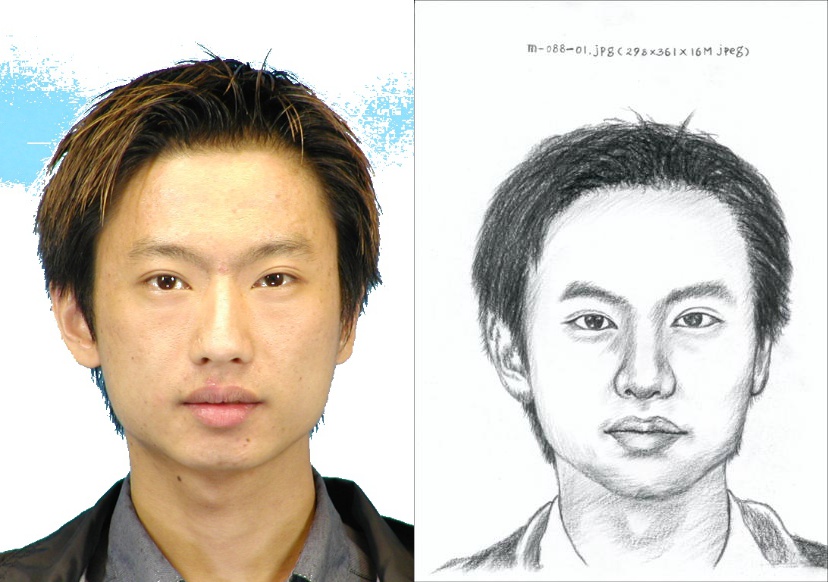 m-088-01.jpg(298x361x16M jpeg)